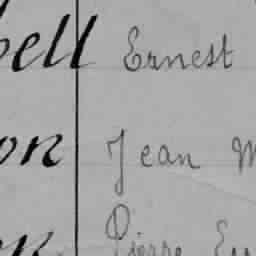 bell Ernest
on Jean M
on Pierre Eu